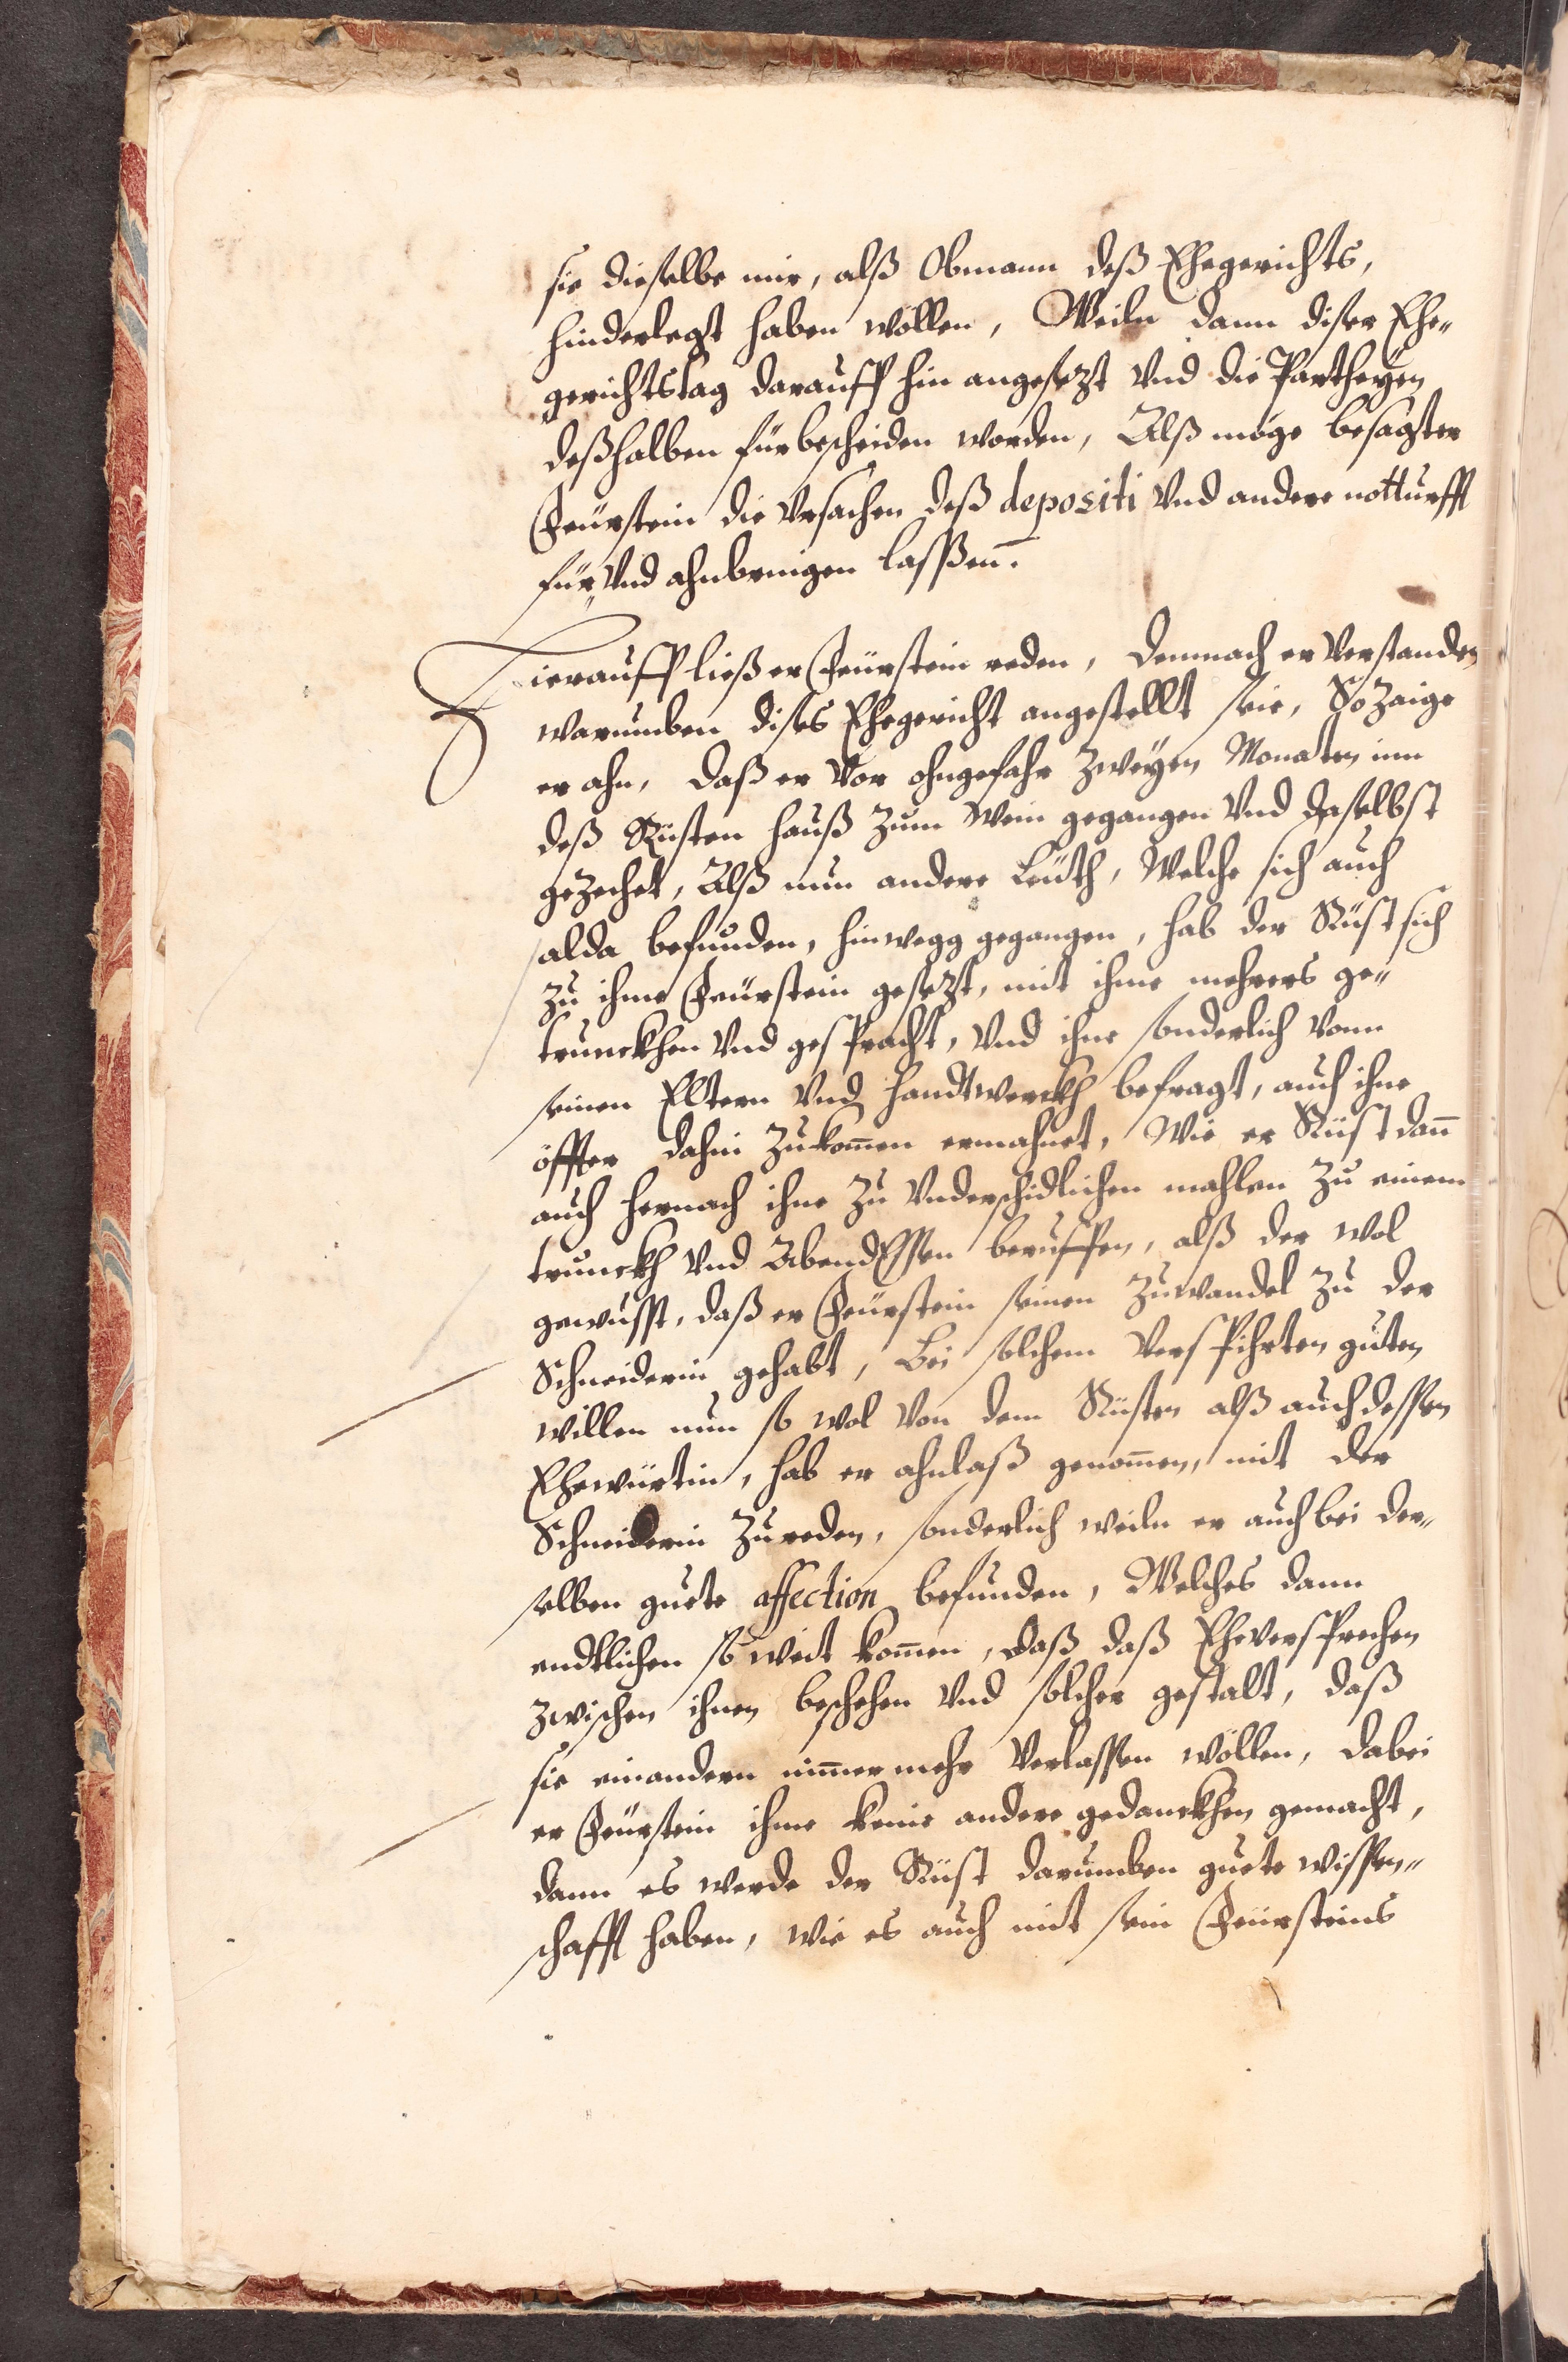 sie dieselbe mir, alß Obmann deß Ehegerichts,
hinderlegt haben wöllen, Weiln dann diser Ehe„
gerichtstag darauff hin angesezt Vnd die Partheyen
deßhalben fürbescheiden worden, Alß möge besagter
Feürstein die Vrsachen deß depositi Vnd andere notturfft
für„ Vnd ahnbringen lasßen̄.
Hierauff ließ er Feürstein reden, Demnach er Verstanden
warumben dises Ehegericht angestellt seie, So zaige
er ahn, daß er Vor ohngefahr zweyen Monaten inn
deß Rüsten hauß zum Wein gegangen Vnd daselbst
gezechet, Alß nun andere Leüth, Welche sich auch
alda befunden, hinwegg gegangen, hab der Rüst sich
zu ihme Feürstein gesezt, mit ihme mehrers ge„
trunckhen Vnd gespracht, Vnd ihne sonderlich vonn
seinen Eltern Vnd handtwerckh befragt, auch ihne
öffter dahin zukom̄en ermahnet, Wie er Rüst dan̄
auch hernach ihne zu Vnderschidlichen mahlen zu einem
trunckh Vnd AbendEssen beruffen, alß der wol
gewusst, daß er Feürstein seinen zuwandel zu der
Schneiderin gehabt, Bei solchem Verspihrten guten
willen nun so wol Von dem Rüsten alß auch dessen
Ehewürtin, hab er ahnlaß genom̄en, mit der
Schneiderin zureden, sonderlich weiln er auch bei der„
selben guete affection befunden, Welches dann
endtlichen so weit kom̄en, daß daß Eheversprechen
zwischen ihnen beschehen Vnd solcher gestalt, daß
sie einandern nim̄ermehr Verlassen wöllen, dabei
er Feürstein ihme keine andere gedanckhen gemacht,
dann es werde der Rüst darumben guete wissen„
schafft haben, wie es auch mit sein Feürsteins